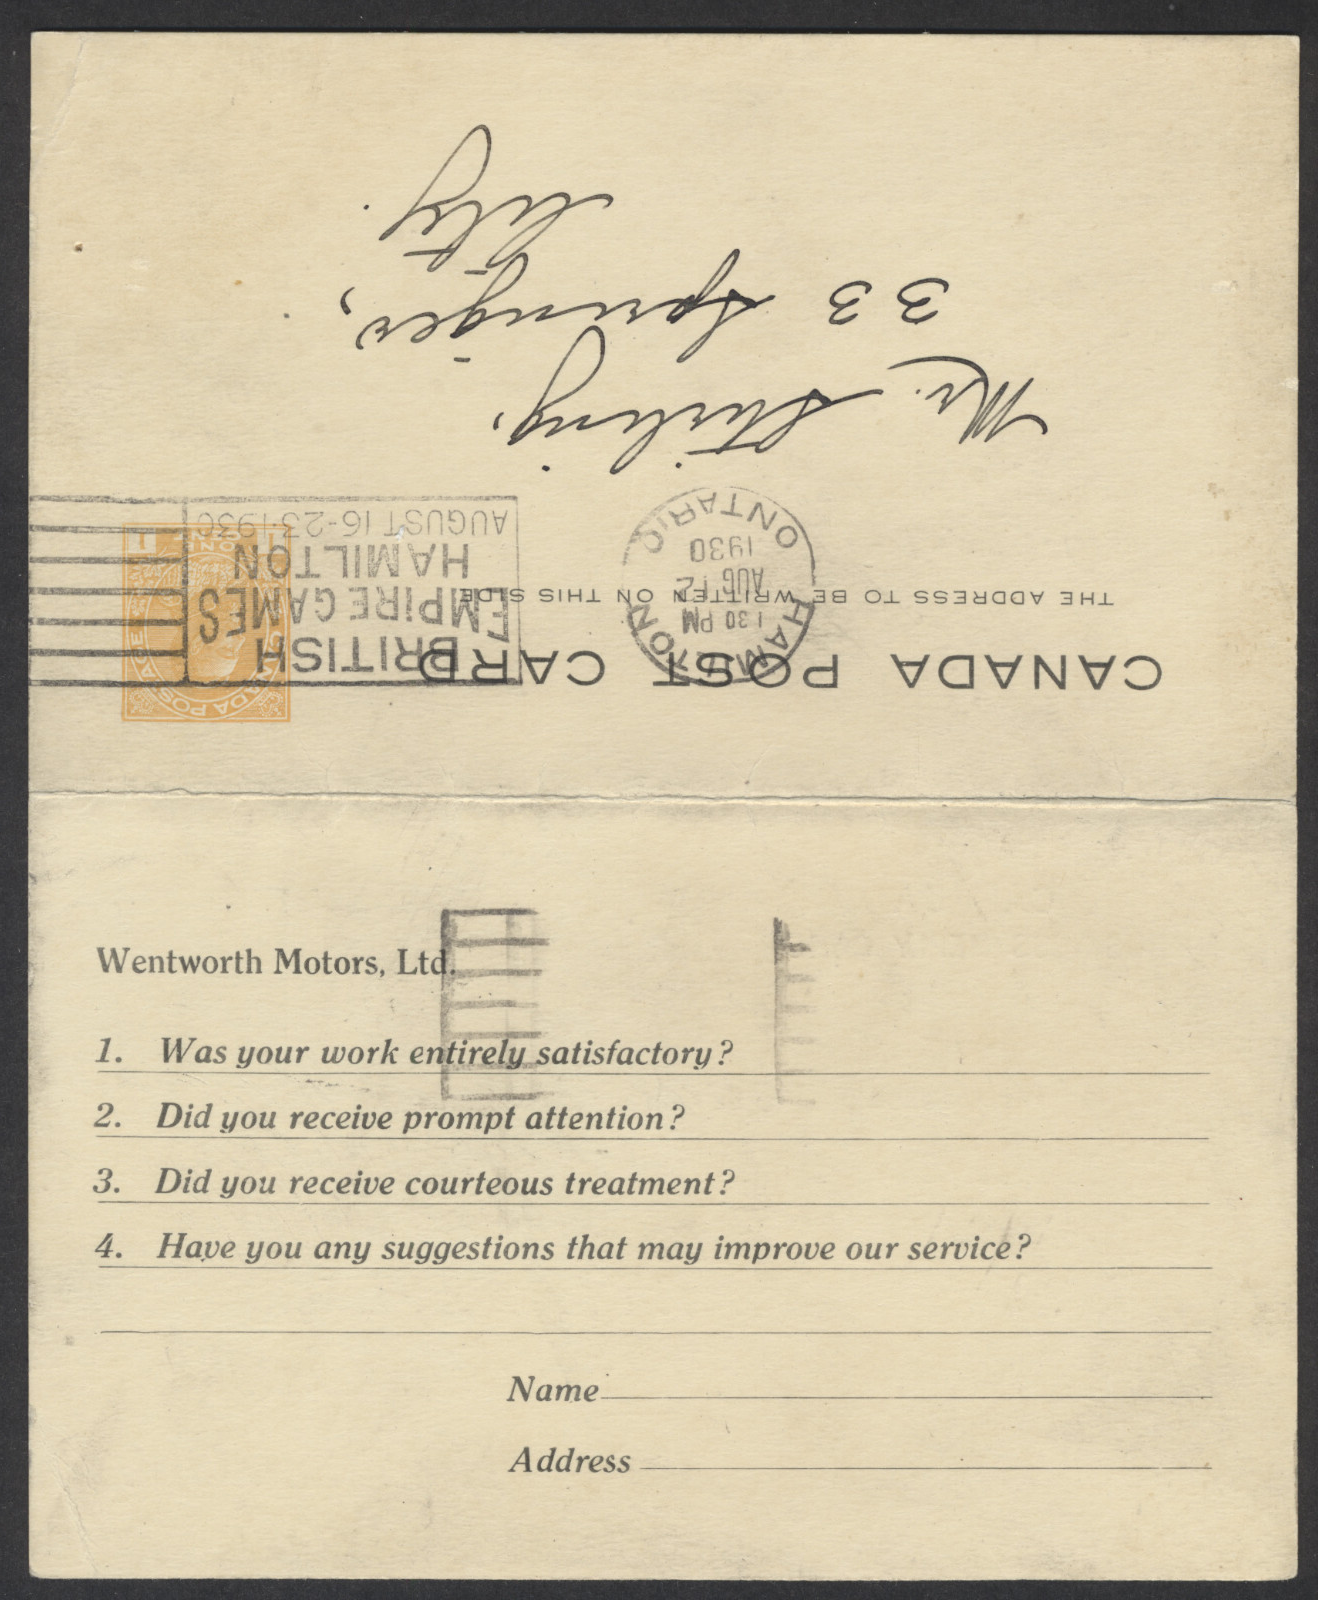 CANADA POST CARD
THE ADDRESS TO BE WRITTEN ON THIS SIDE
HAMILTON
1 30 PM
AUG 12
1930
ONTARIO
BRITISH
EMPIRE GAMES
HAMILTON
AUGUST 16-23-1930
Mr. Stirling,
33 Springer,
City.
Wentworth Motors, Ltd.
1. Was your work entirely satisfactory?
2. Did you receive prompt attention?
3. Did you receive courteous treatment?
4. Have you any suggestions that may improve our service?
Name
Address